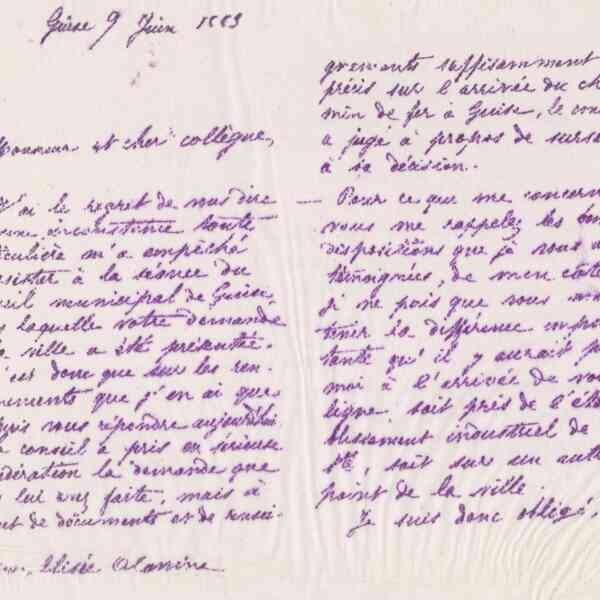 Guise 9 Juin 1883
Monsieur et cher collègue,
J'ai le regret de vous dire
une circonstance toute
ticulière m'a empêché
assister à la séance du
seil municipal de Guise,
laquelle votre demande
la ville a été présentée.
n'est donc que sur les ren-
nements que j'en ai que
puis vous répondre aujourd'hui.
conseil a pris en sérieuse
sidération la demande que
lui avez faite, mais à
de documents et de rensei-
Élisée
gnements suffisamment
précis sur l'arrivée du che
min de fer à Guise, le con
a jugé à propos de surse
à sa décision.
— Pour ce que me concern
vous me rappelez les bon
dispositions que je vous a
témoignées, de mon côté
je ne puis que vous mon
trer la différence impor
tante qu'il y aurait po
moi à l'arrivée de vo
ligne, soit près de l'éta
blissement industriel de
soit sur un autr
point de la ville.
Je suis donc obligé,